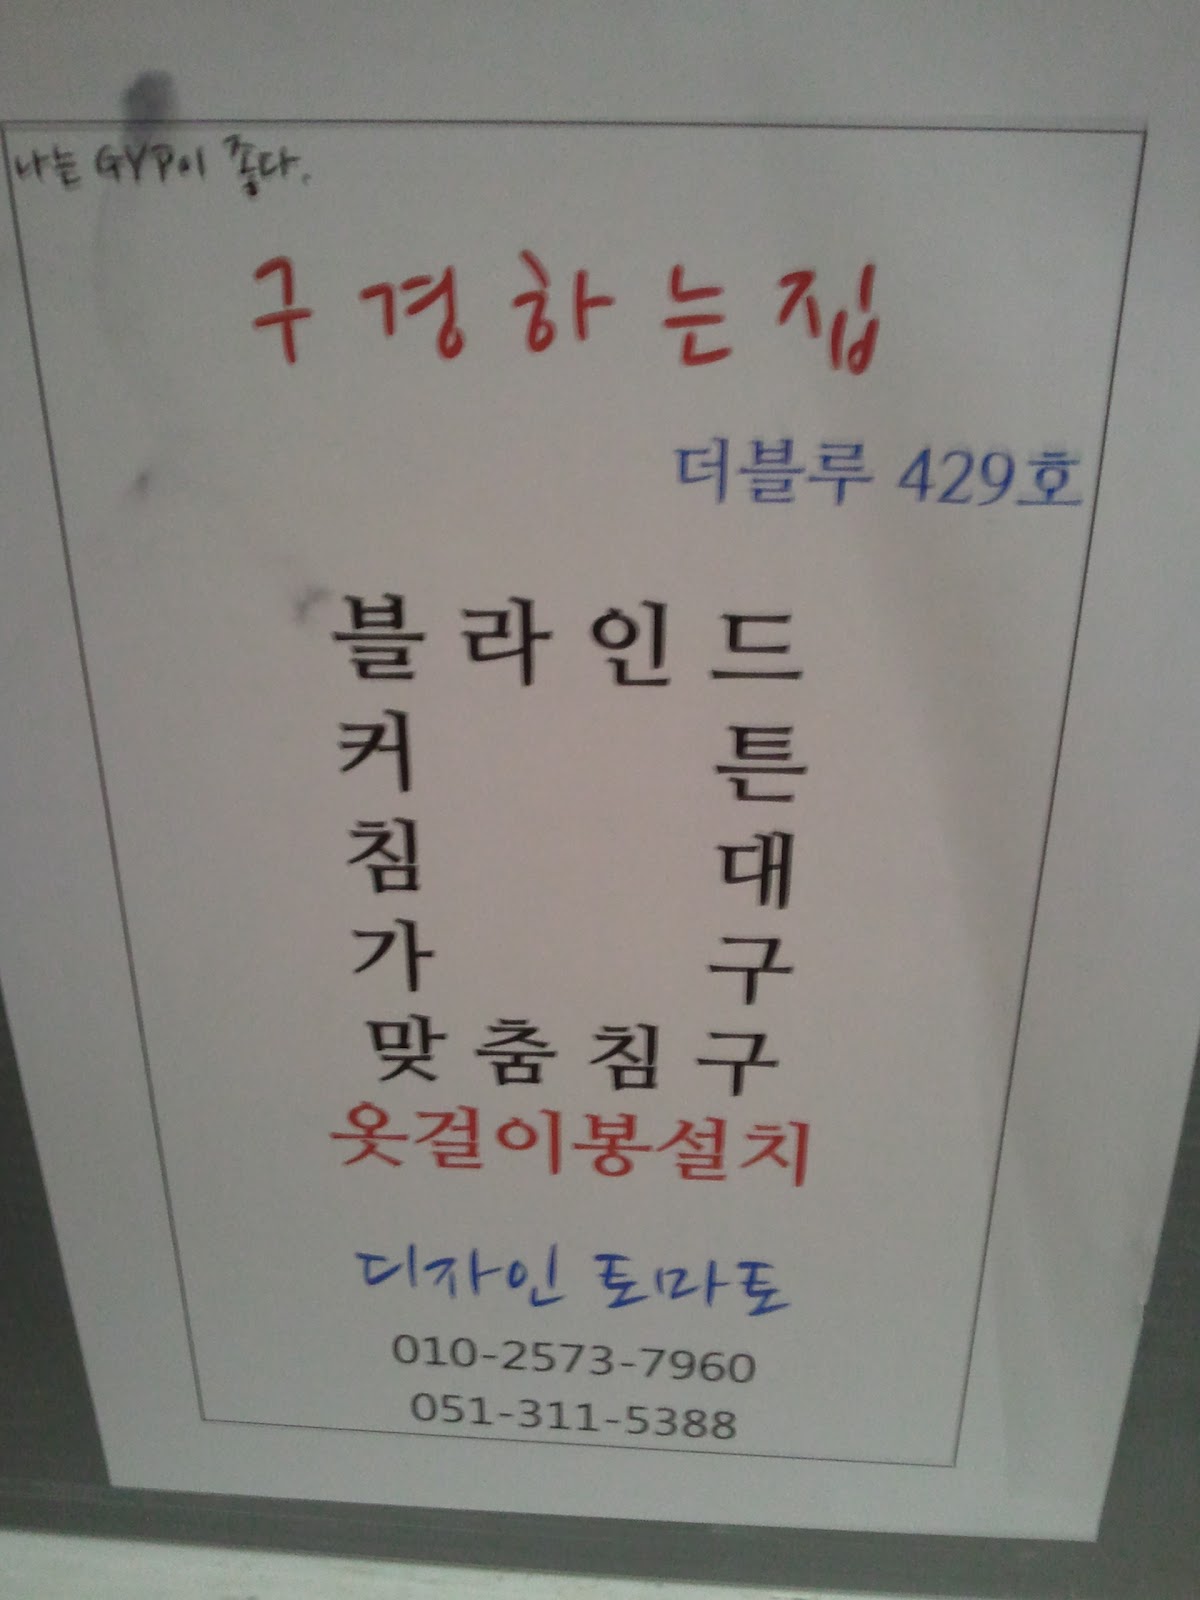 나는 GYP이 좋다.
구경하는집
더블루 429호
블라인드
커 튼
침 대
가 구
맞춤침구
옷걸이봉설치
디자인 토마토
010-2573-7960
051-311-5388